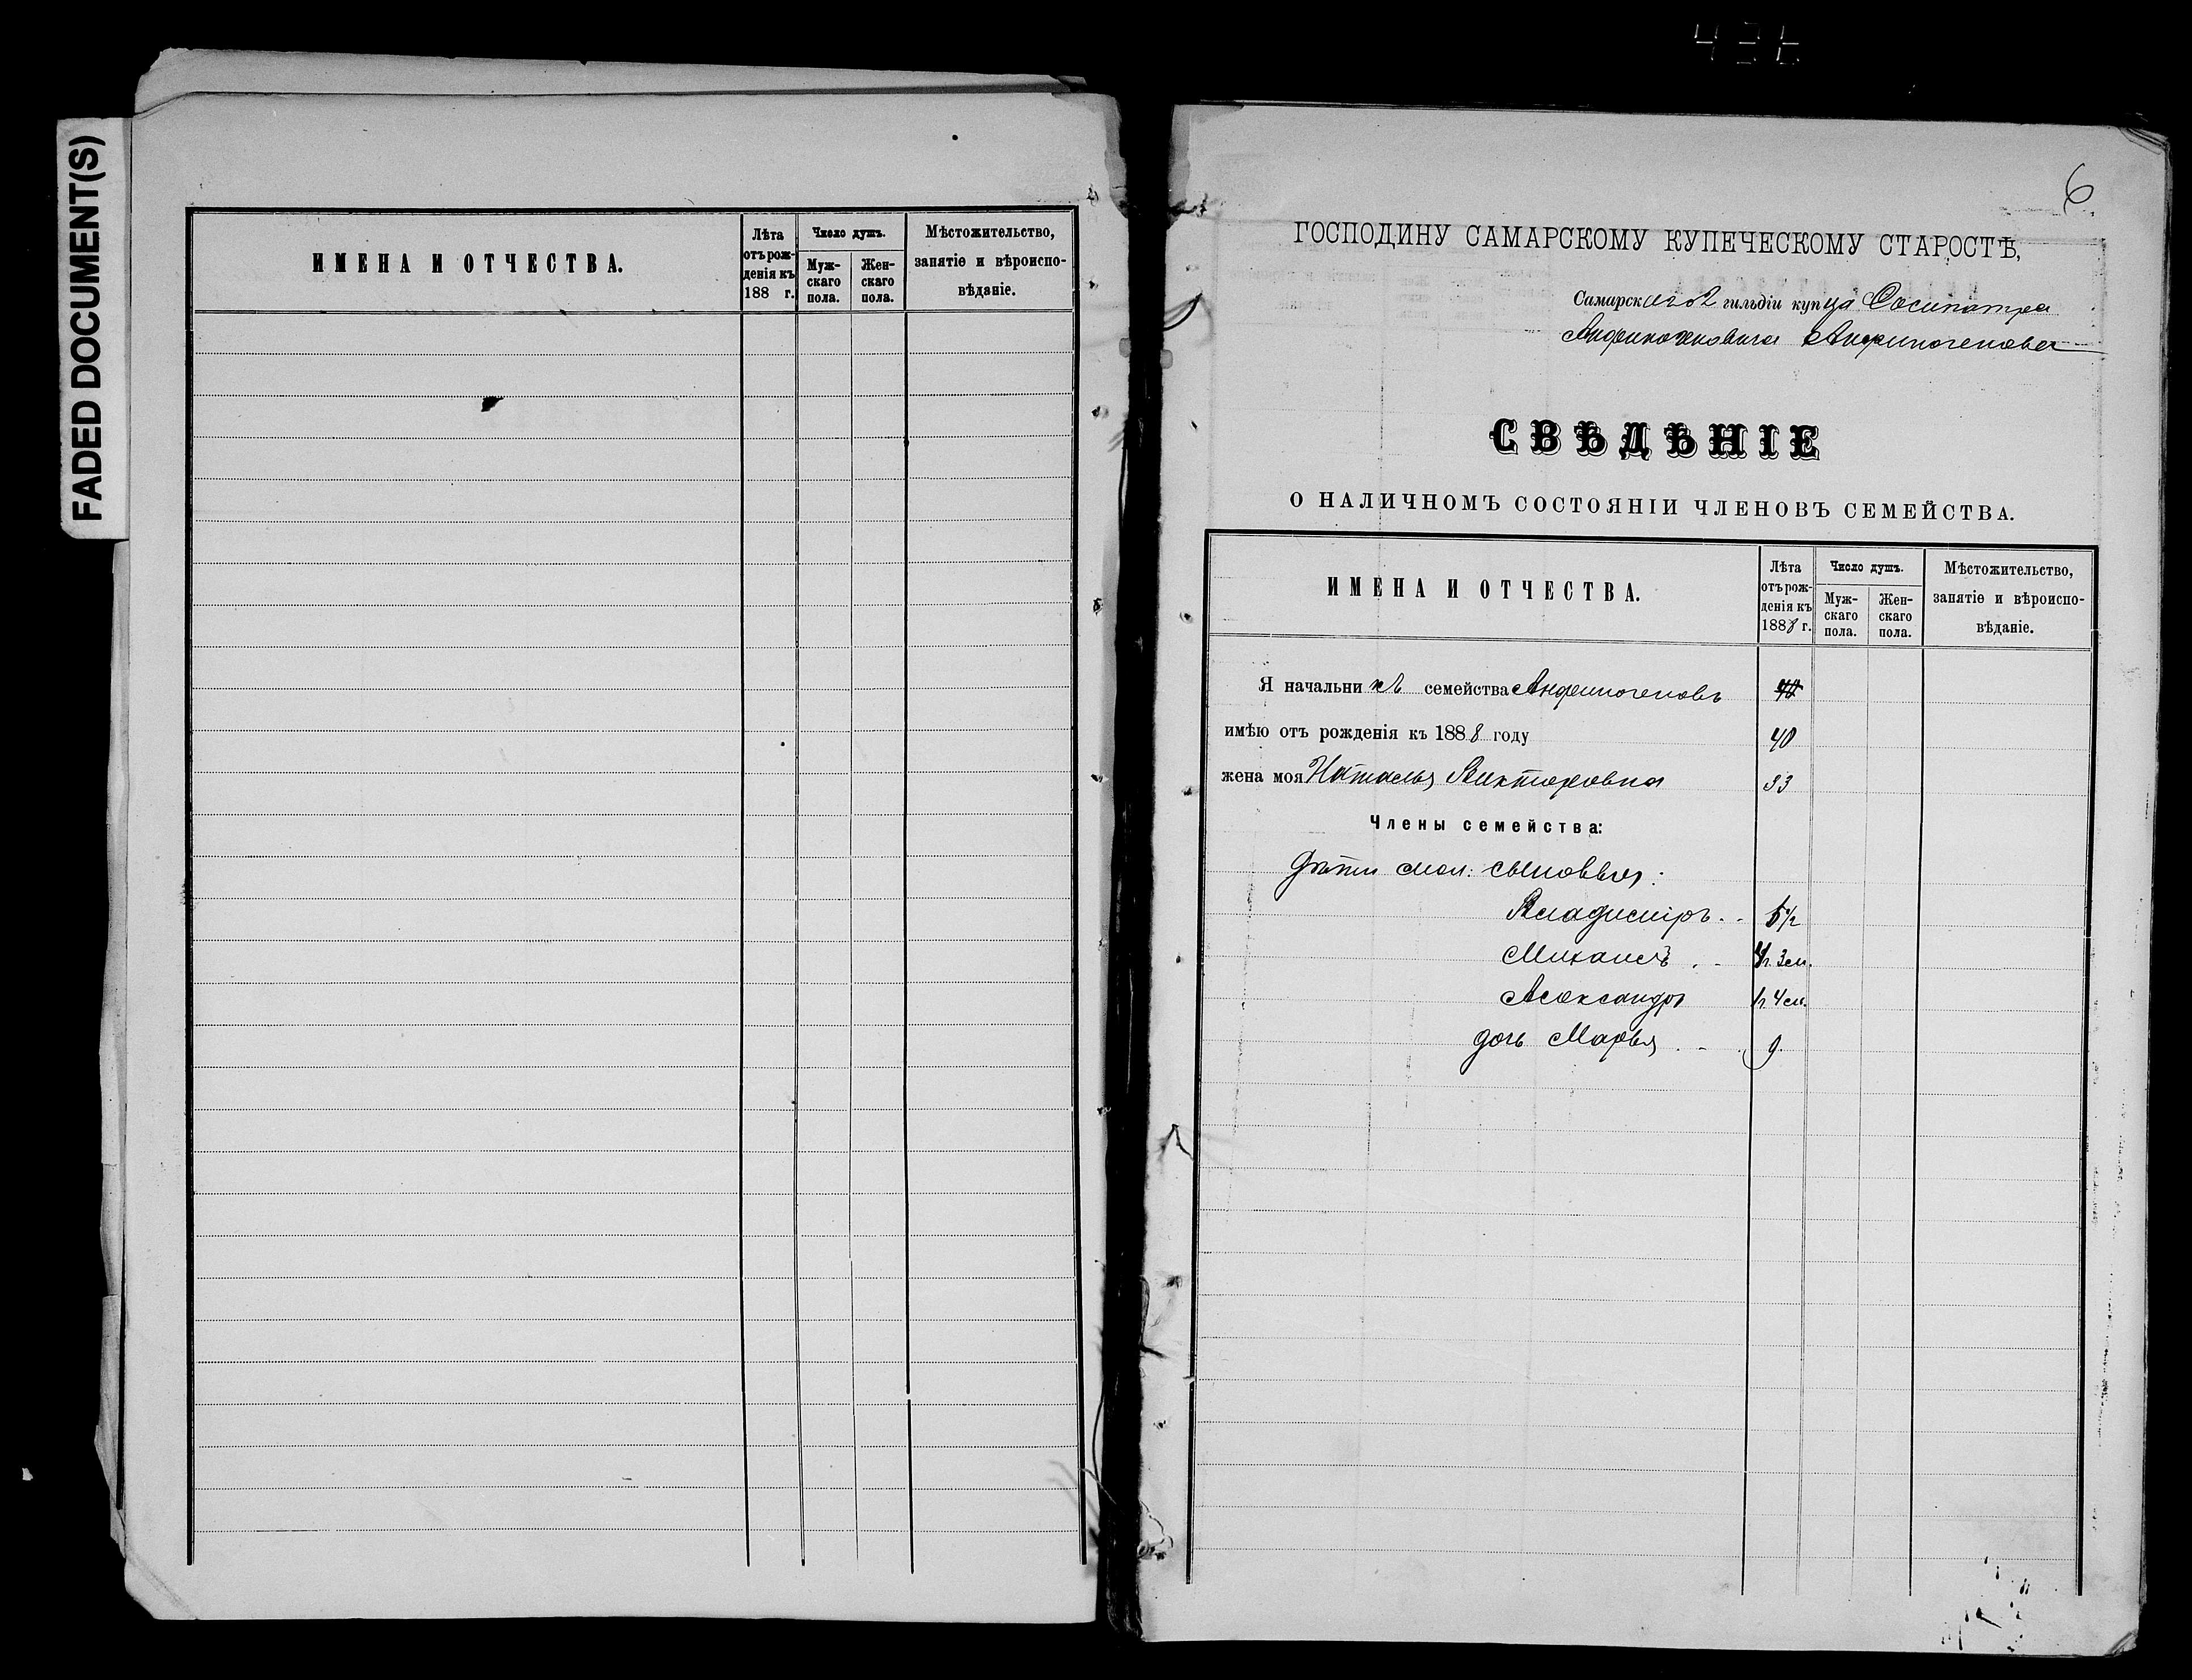 FADED DOCUMENT(S)
ИМЕНА И ОТЧЕСТВА.
Лѣта
отъ рож-
денія къ
188 г.
Число душъ.
Муж-
скаго
пола.
Жен-
скаго
пола.
Мѣстожительство,
занятіе и вѣроиспо-
вѣданіе.
6
ГОСПОДИНУ САМАРСКОМУ КУПЕЧЕСКОМУ СТАРОСТѢ,
Самарскаго 2 гильдіи купца Сосипатра
Анфиногеновича Анфиногенова
СВѢДѢНІЕ
О НАЛИЧНОМЪ СОСТОЯНІИ ЧЛЕНОВЪ СЕМЕЙСТВА.
ИМЕНА И ОТЧЕСТВА.
Лѣта
отъ рож-
денія къ
1888 г.
Число душъ.
Муж-
скаго
пола.
Жен-
скаго
пола.
Мѣстожительство,
занятіе и вѣроиспо-
вѣданіе.
Я начальникъ семейства Анфиногеновъ
имѣю отъ рожденія къ 1888 году 40
жена моя Наталья Викторовна 33
Члены семейства:
Дѣти мои: сыновья:
Владиміръ 5½
Михаилъ 4г. 3м.
Александръ 1г. 4м.
дочь Марья 9.